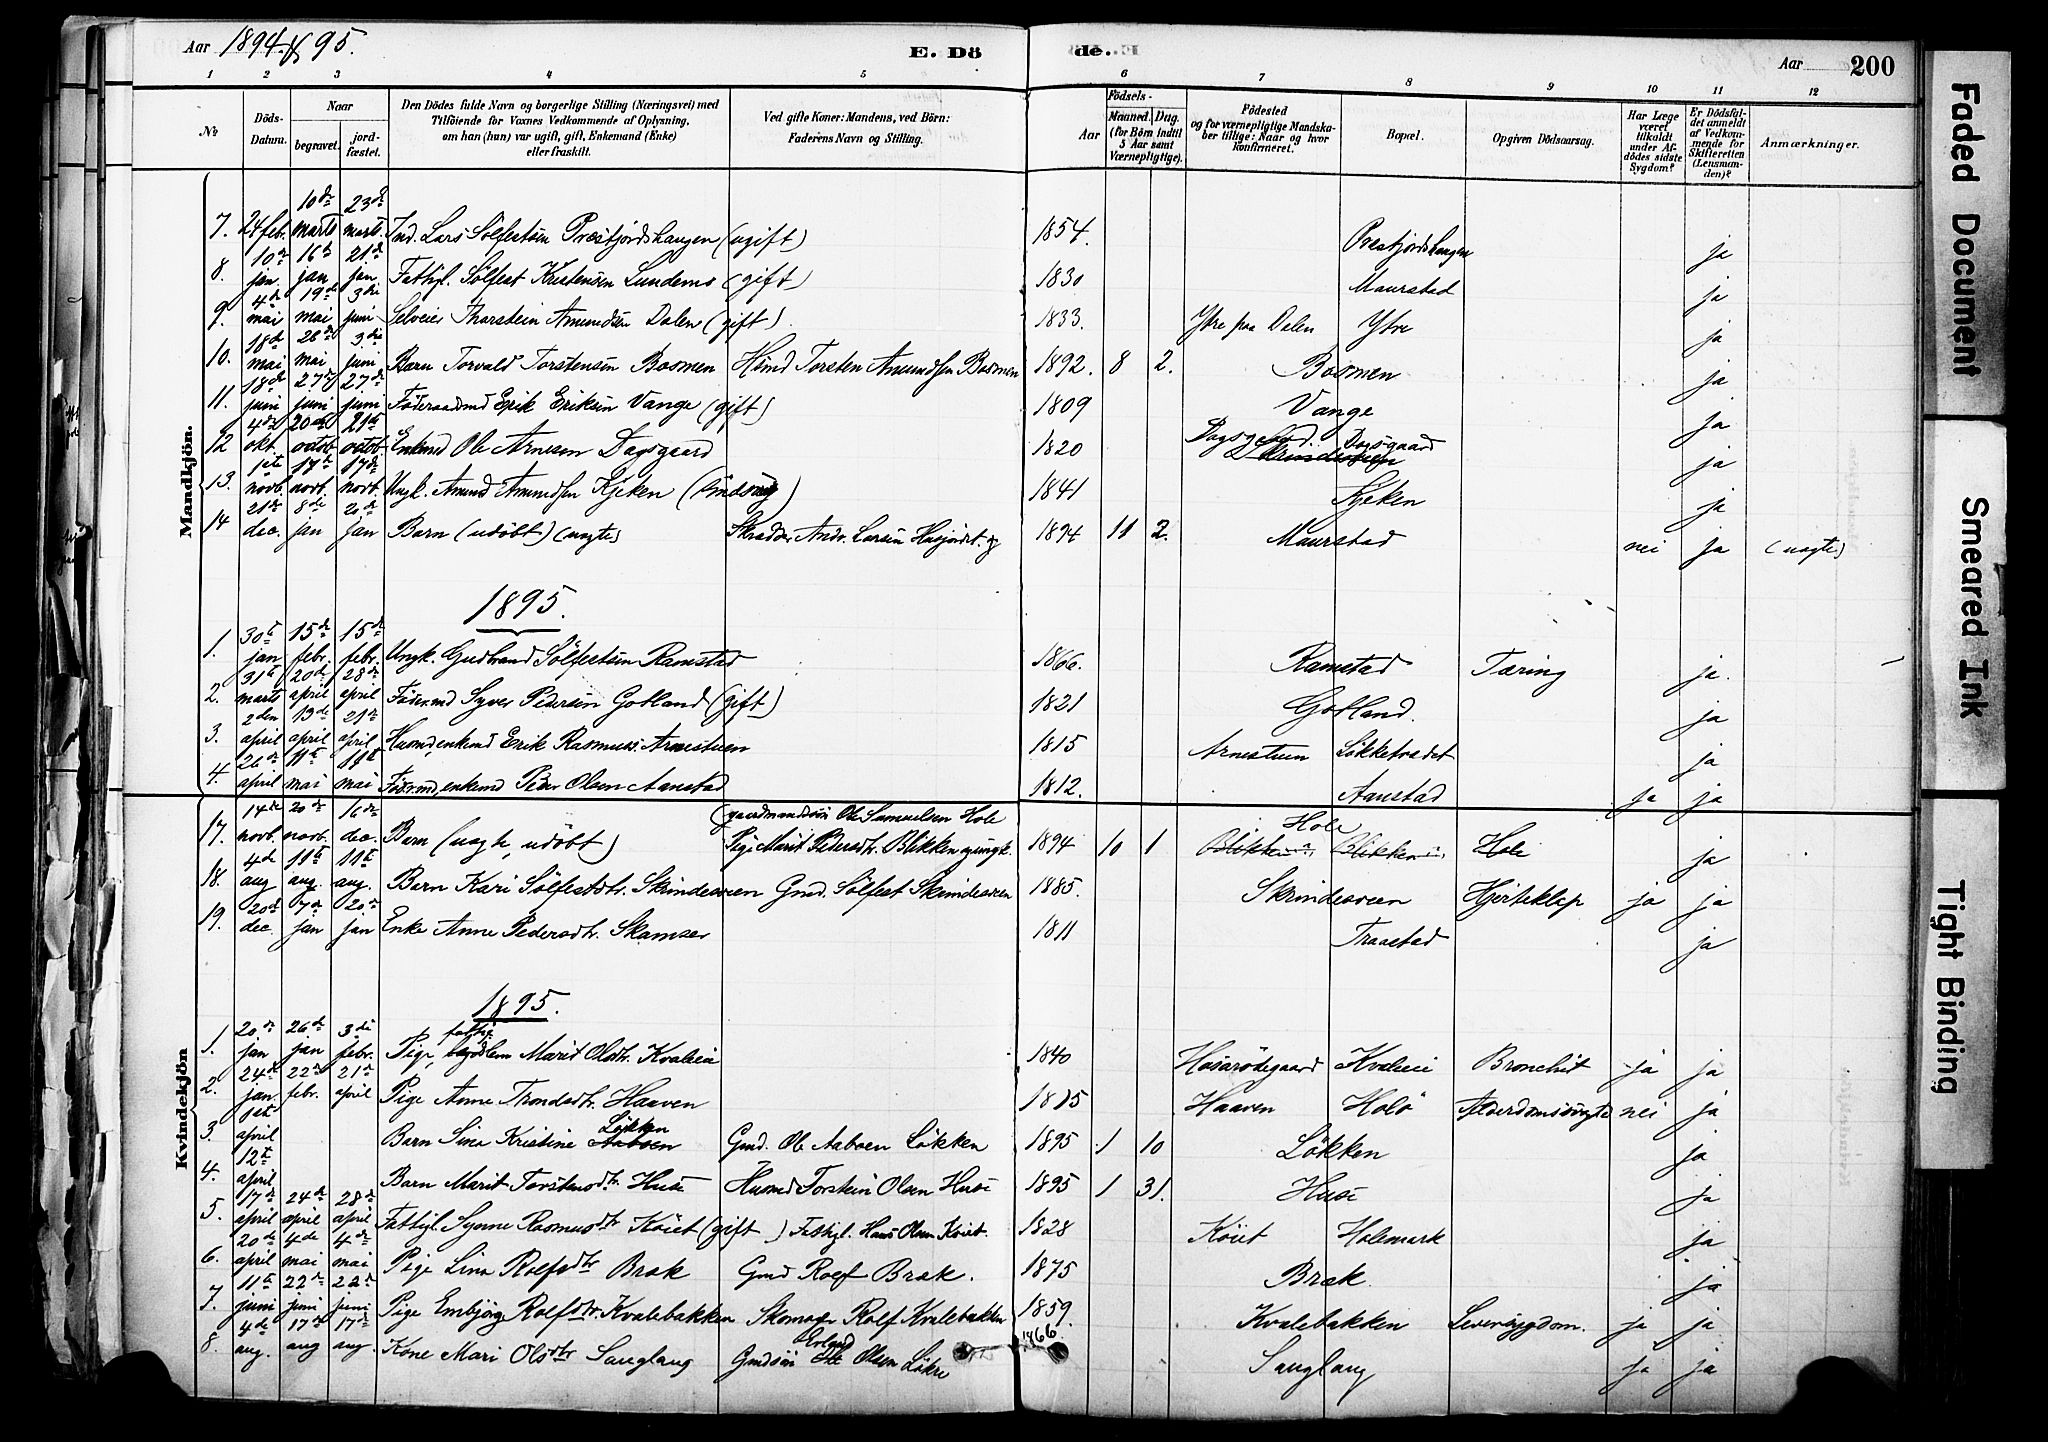 Aar 1894 & 95.
E. Dö
de.
Aar
200
1 2 3 4 5 6 7 8 9 10 11 12
No
Döds-Datum.
Naar
begravet.
jord-fæstet.
Den Dödes fulde Navn og borgerlige Stilling (Næringsvei) med
Tilföiende for Voxnes Vedkommende af Oplysning,
om han (hun) var ugift, gift, Enkemand (Enke)
eller fraskilt.
Ved gifte Koner: Mandens, ved Börn:
Faderens Navn og Stilling.
Födsels-
Aar
Maaned.
Dag.
(for Börn indtil
5 Aar samt
Værnepligtige).
Födested
og for værnepligtige Mandska-
ber tillige: Naar og hvor
konfirmeret.
Bopæl.
Opgiven Dödsaarsag.
Har Læge
været
tilkaldt
under Af-
dödes sidste
Sygdom?
Er Dödsfal-
det anmeldt
af Vedkom-
mende for
Skifteretten
(Lensman-
den)?
Anmærkninger.
Mandkjön.
7. 24 febr. 10de marts 23de marts. Ind. Lars Sölfestsön Præstjordshaugen (ugift) 1854. Præstjordshaugen ja
8. 10de jan. 16de jan. 21de jan Fattigl. Sölfest Kristensön Lundemo (gift) 1830 Maurstad ja
9. 4de mai 19de mai 3die juni Selveier Thorstein Amundsön Dalen (gift). 1833. Ytre paa Dalen Ytre ja
10. 18de mai 26de mai 3die juni Barn Torvald Torstensön Bosmen Hsmd Torsten Amundssen Bosmen 1892. 8 2. Bosmen ja
11. 18de juni 27de juni 27de juni Föderaadsmd Erik Eriksön Vange (gift) 1809 Vange ja
12 4de okt. 20de octob. 21de octob. Enkemd Ole Arnesen Dagsgaard 1820 Dagsgaard Dagsgaard ja
13. 1ste novb. 17de novb. 17de novb. Ungk. Amund Amundssen Kjeken 1841 Kjeken ja
14 21de dec. 8de jan 20de jan Barn (udöbt) (uægte) Skrædder Andr. Larsön Husjordet. og 1894 11 2. Maurstad nei ja (uægte)
1895.
1. 30te jan 15de febr. 15de febr. Ungk. Gudbrand Sölfestsön Ramstad 1866. Ramstad Tæring ja.
2. 31te marts 20de april 28de april Föder.md Syver Pedersön Gotland (gift) 1821 Gotland. ja
3. 2den april 13de april 21de april Husmd, enkemd Erik Rasmuss. Arnestuen 1815 Arnestuen Lökketrædet ja
4. 26de april 11te mai 11te mai Föder.md, enkemd Peder Olsen Aanstad 1812. Aanstad ja ja
Kvindekjön
17. 14de novb. 20de novb. 16de dec. Barn (uægte, udöbt) (gaardmandssön Ole Samuelsen Hole
Pige Marit Pedersdtr. Blikken og ungk. 1894 10 1 Hole Blikken Blikken Hole ja
18. 4de aug 11te aug. 11te aug. Barn Kari Sölfestdtr. Skrindesveen Gmd. Sölfest Skrindesveen 1885. Skrindesveen Hjerteklap ja ja
19. 20de dec. 7de jan 20de jan Enke Anne Pedersdtr. Skamser 1811 Traastad ja
1895.
1. 20de jan 26de jan 3die febr. Pige, fattig Marit Olsdtr. Kvaleiei 1840 Husarödegaard Kvaleiei Bronchit ja ja
2. 24de jan. 22de febr. 21de april Pige Anne Trondsdtr. Haaven 1815 Haaven Holö Alderdomssvagh. nei ja
3. 1ste april Barn Sina Kristine Aaboen Lökken Gmd. Ole Aaboen Lökken 1895 1 10 Lökken ja
4. 12te april Barn Marit Torstensdtr. Husei Husmd Torstein Olsen Husei 1895 1 31. Husei ja
5. 17de april 24de april 28de april Fattigl. Synne Rasmusdtr Köiet (gift) Fattigl. Hans Olsen Köiet. 1828 Köiet Holemark ja
6. 20de april 4de mai 4de mai Pige Lina Rolfsdtr Bræk Gmd Rolf Bræk. 1875 Bræk ja
7. 11te juni 22de juni 22de juni Pige Embjörg Rolfsdtr. Kvalebakken Skomager Rolf Kvalebakken 1859. Kvalebakken Leversygdom. ja ja
8. 4de aug. 17de aug 17de aug. Kone Mari Olsdtr Sanglang Gmdsön Erland Ole Olsen Lökre 1866. Sanglang ja ja
Faded Document
Smeared Ink
Tight Binding